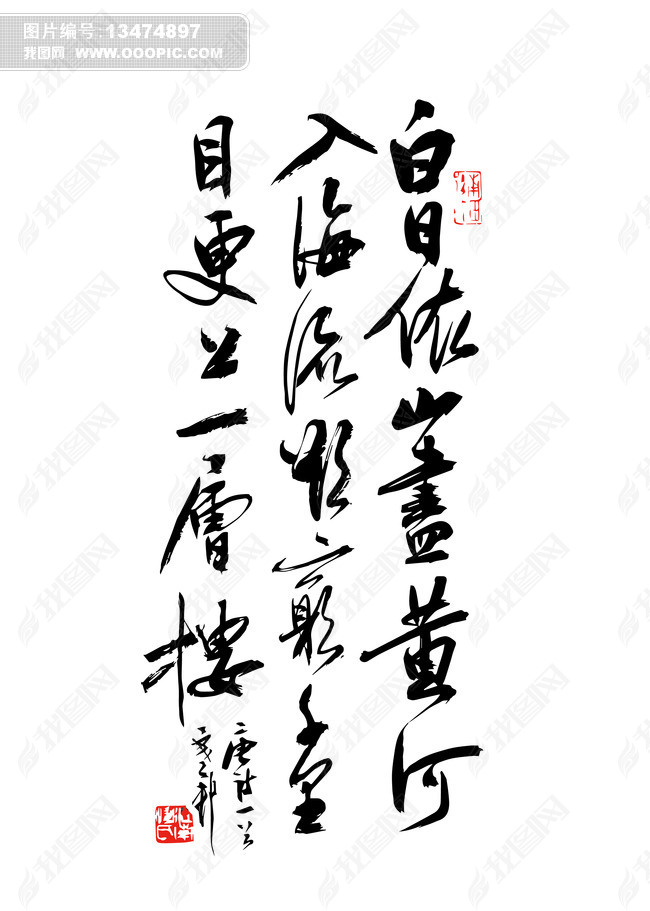 图片编号:13474897
我图网 WWW.OOOPIC.COM
白日依山盡黃河
入海流欲窮千里
目更上一層樓
唐詩一首